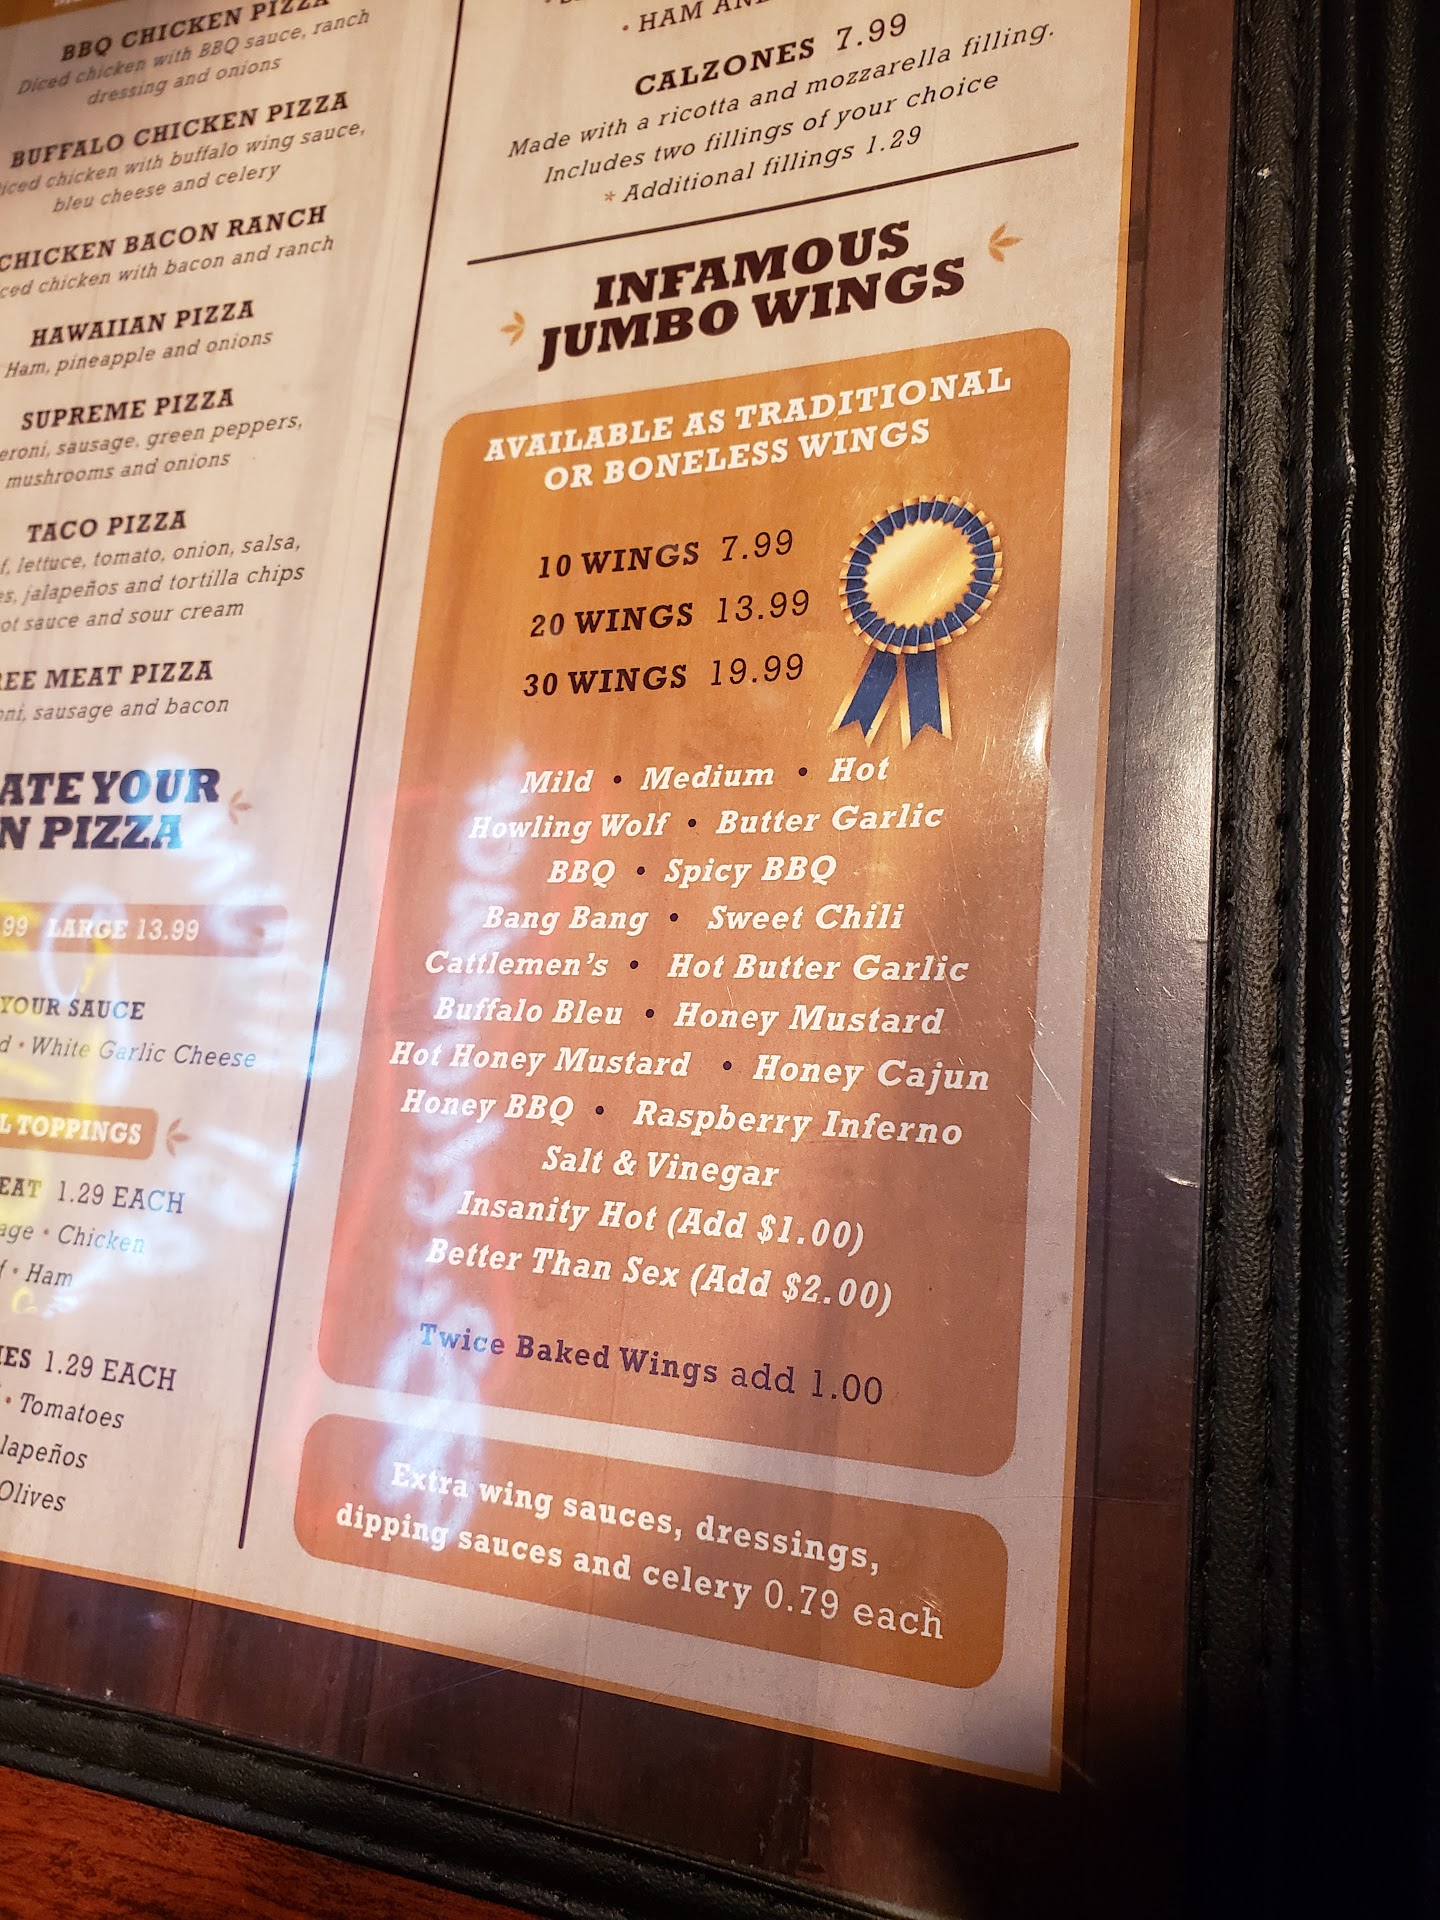 BBQ CHICKEN PIZZA
Diced chicken with BBQ sauce, ranch
dressing and onions
BUFFALO CHICKEN PIZZA
chicken with buffalo wing sauce,
bleu cheese and celery
CHICKEN BACON RANCH
chicken with bacon and ranch
HAWAIIAN PIZZA
Ham, pineapple and onions
SUPREME PIZZA
sausage, green peppers,
mushrooms and onions
TACO PIZZA
lettuce, tomato, onion, salsa,
jalapeños and tortilla chips
sauce and sour cream
MEAT PIZZA
sausage and bacon
YOUR
PIZZA
99 LARGE 13.99
YOUR SAUCE
• White Garlic Cheese
TOPPINGS
1.29 EACH
• Chicken
• Ham
1.29 EACH
• Tomatoes
Olives
• HAM
CALZONES 7.99
Made with a ricotta and mozzarella filling.
Includes two fillings of your choice
* Additional fillings 1.29
INFAMOUS
JUMBO WINGS
AVAILABLE AS TRADITIONAL
OR BONELESS WINGS
10 WINGS 7.99
20 WINGS 13.99
30 WINGS 19.99
Mild • Medium • Hot
Howling Wolf • Butter Garlic
BBQ • Spicy BBQ
Bang Bang • Sweet Chili
Cattlemen's • Hot Butter Garlic
Buffalo Bleu • Honey Mustard
Hot Honey Mustard • Honey Cajun
Honey BBQ • Raspberry Inferno
Salt & Vinegar
Insanity Hot (Add $1.00)
Better Than Sex (Add $2.00)
Twice Baked Wings add 1.00
Extra wing sauces, dressings,
dipping sauces and celery 0.79 each